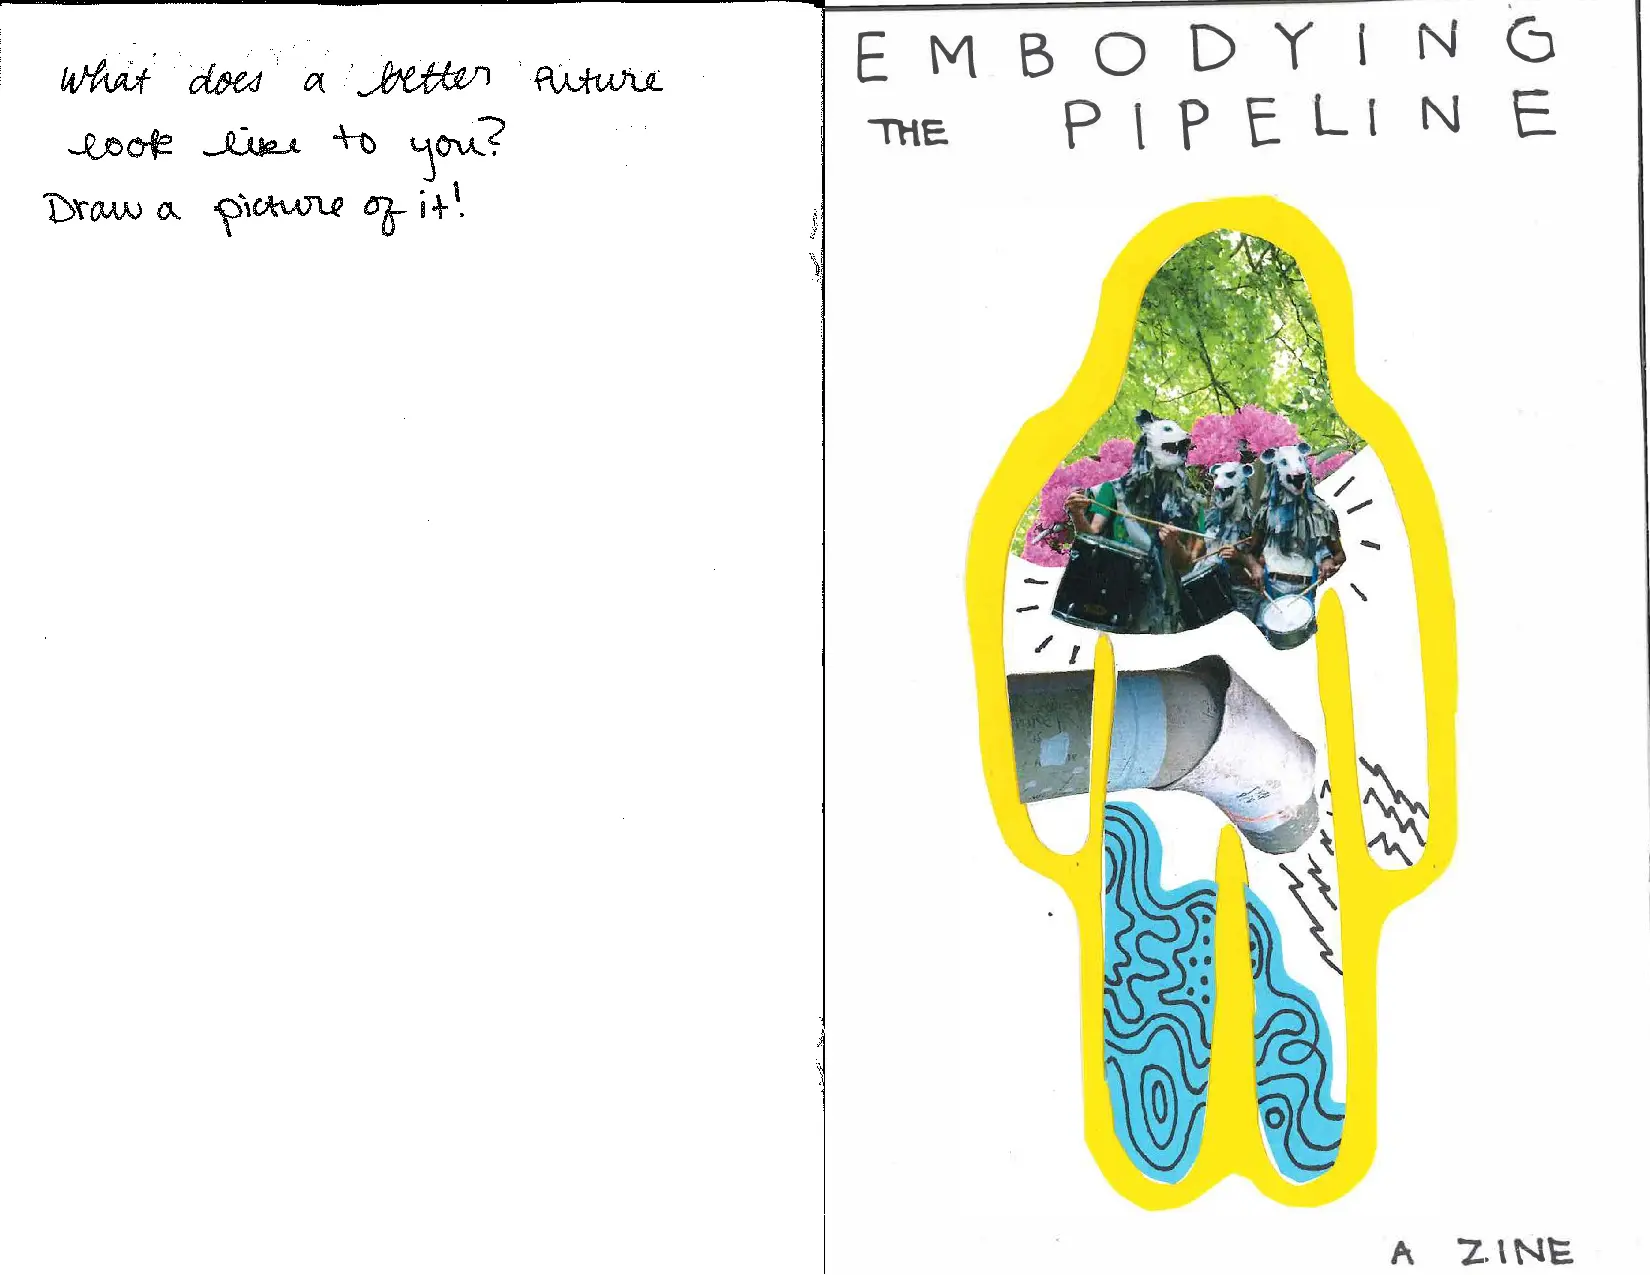 What does a better future
look like to you?
Draw a picture of it!
EMBODYING
THE PIPELINE
A ZINE